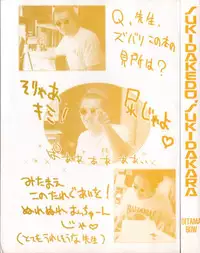 Q、先生、
ズバリこの本の
見所は?
そりゃあ
キミ!
尻じゃよ♡
みたまえ
このたれぐあいを!
ぬれぬれ
じゃ♡
(とてもうれしそうな先生)
SUKIDAKEDO, SUKIDAKARA